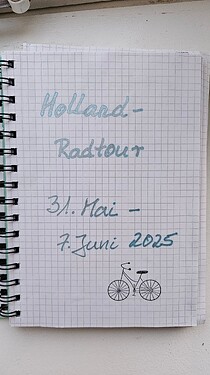 Holland-
Radtour
31. Mai -
7. Juni 2025